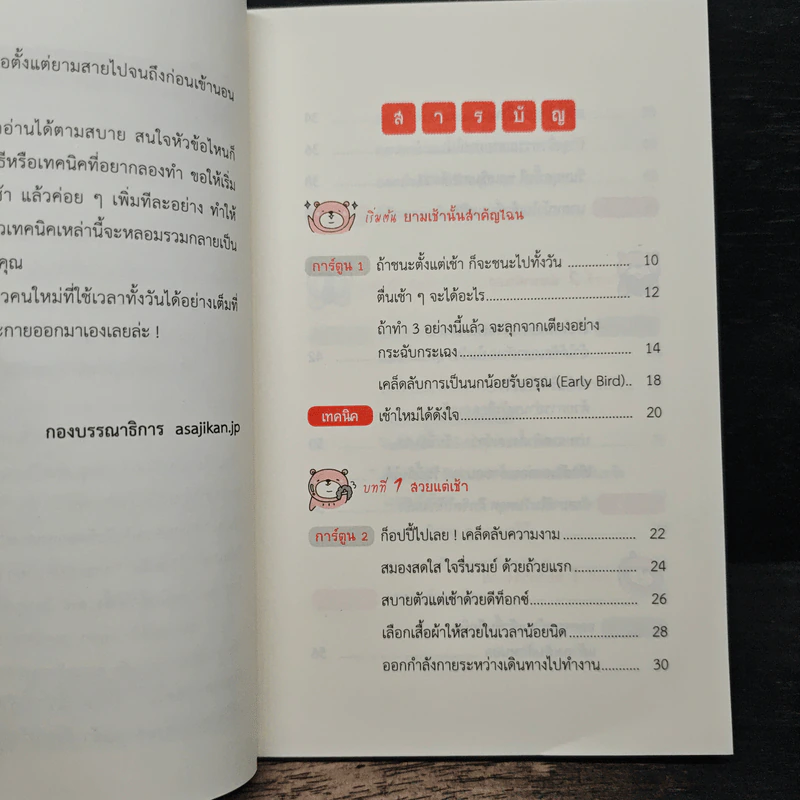 อตั้งแต่ยามสายไปจนถึงก่อนเข้านอน
อ่านได้ตามสบาย สนใจหัวข้อไหนก็
ธีหรือเทคนิคที่อยากลองทำ ขอให้เริ่ม
ช้า แล้วค่อย ๆ เพิ่มทีละอย่าง ทำให้
วเทคนิคเหล่านี้จะหลอมรวมกลายเป็น
คุณ
วคนใหม่ที่ใช้เวลาทั้งวันได้อย่างเต็มที่
ะกายออกมาเองเลยล่ะ !
กองบรรณาธิการ asajikan.jp
สารบัญ
เริ่มต้น ยามเช้านั้นสำคัญไฉน
การ์ตูน 1 ถ้าชนะตั้งแต่เช้า ก็จะชนะไปทั้งวัน ............... 10
ตื่นเช้า ๆ จะได้อะไร ............... 12
ถ้าทำ 3 อย่างนี้แล้ว จะลุกจากเตียงอย่าง
กระฉับกระเฉง ............... 14
เคล็ดลับการเป็นนกน้อยรับอรุณ (Early Bird).. 18
เทคนิค เช้าใหม่ได้ดังใจ ............... 20
บทที่ 1 สวยแต่เช้า
การ์ตูน 2 ก็อปปี้ไปเลย ! เคล็ดลับความงาม ............... 22
สมองสดใส ใจรื่นรมย์ ด้วยถ้วยแรก ............... 24
สบายตัวแต่เช้าด้วยดีท็อกซ์ ............... 26
เลือกเสื้อผ้าให้สวยในเวลาน้อยนิด ............... 28
ออกกำลังกายระหว่างเดินทางไปทำงาน ............... 30